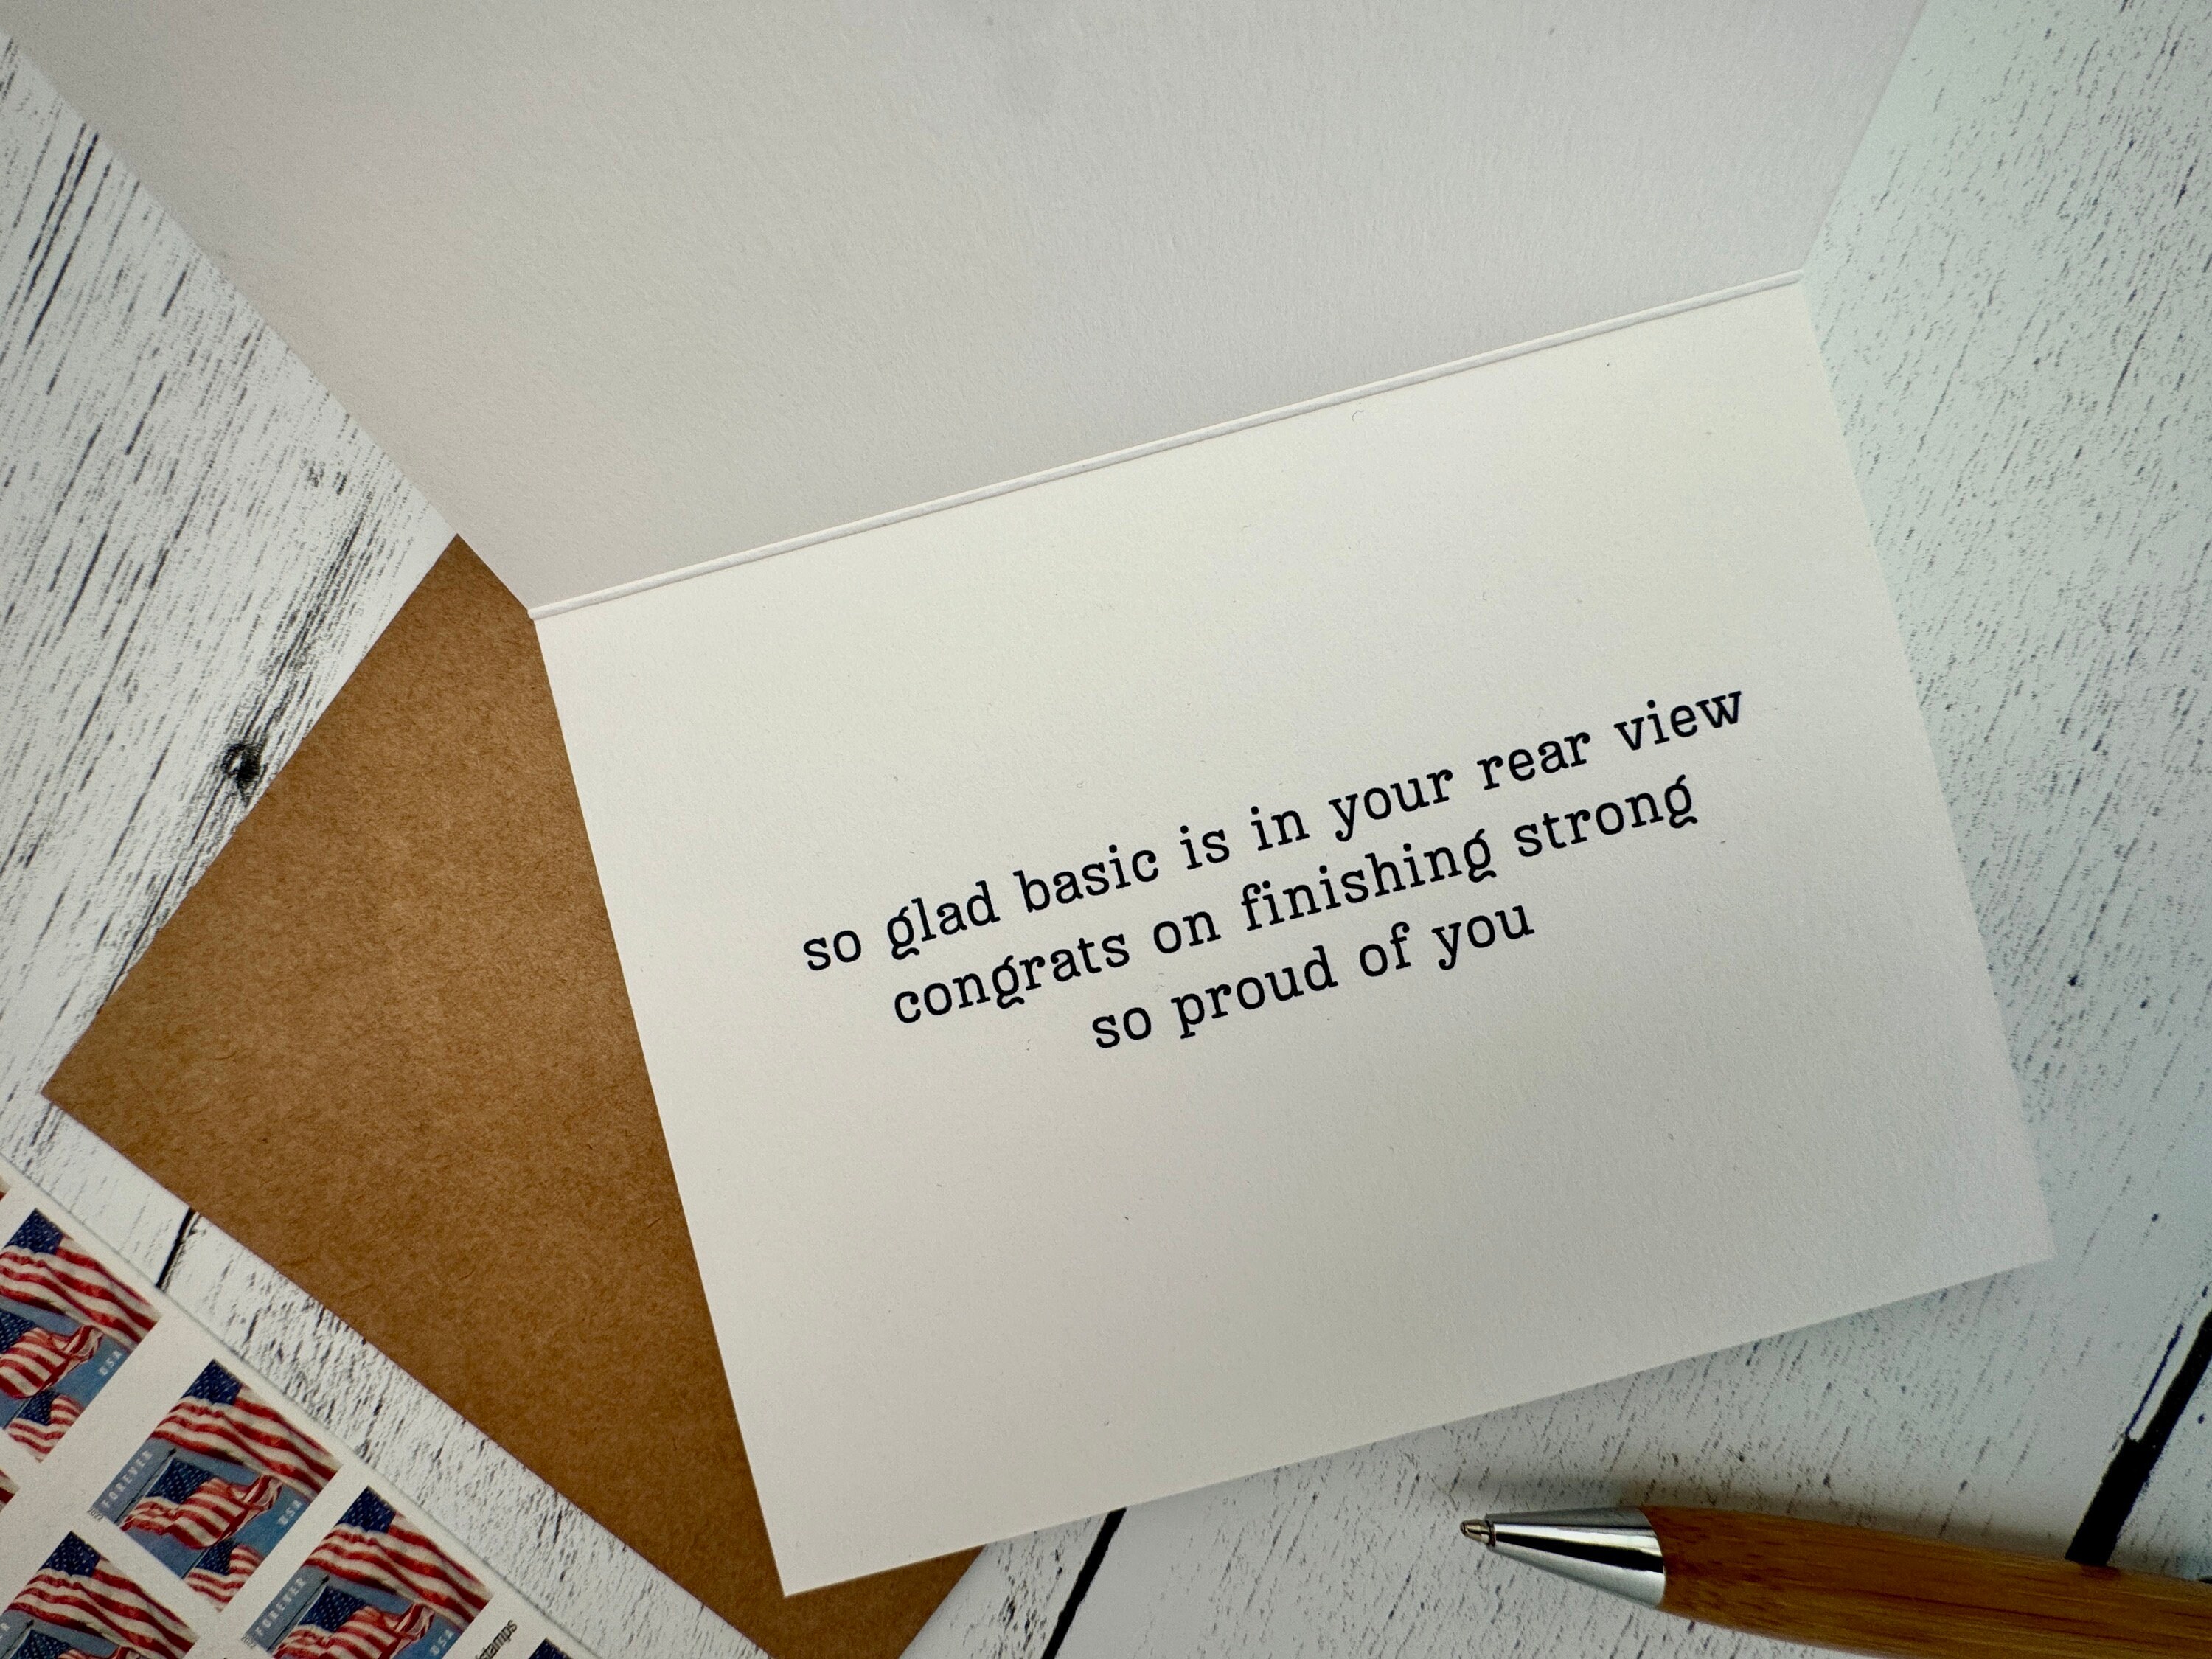 so glad basic is in your rear view
congrats on finishing strong
so proud of you
USA
FOREVER
USA
FOREVER
USA
stamps